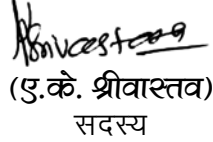 AKSrivastava
(ए.के. श्रीवास्तव)
सदस्य